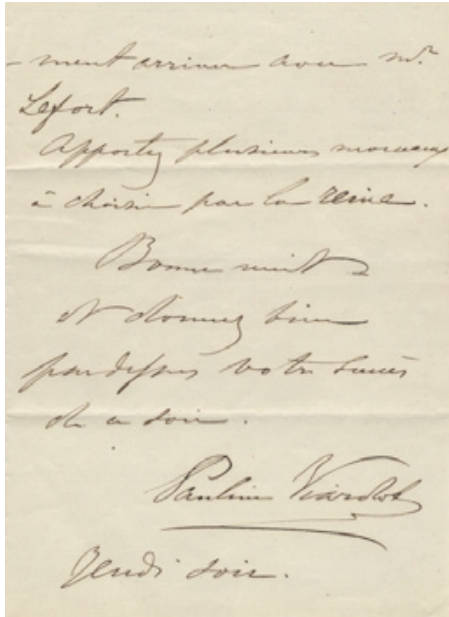 - ment arriver avec Mr.
Lefort.
Apportez plusieurs morceaux
à choisir par la reine.
Bonne nuit
et dormez bien
par dessus votre succès
de ce soir.
Pauline Viardot
Jeudi soir.